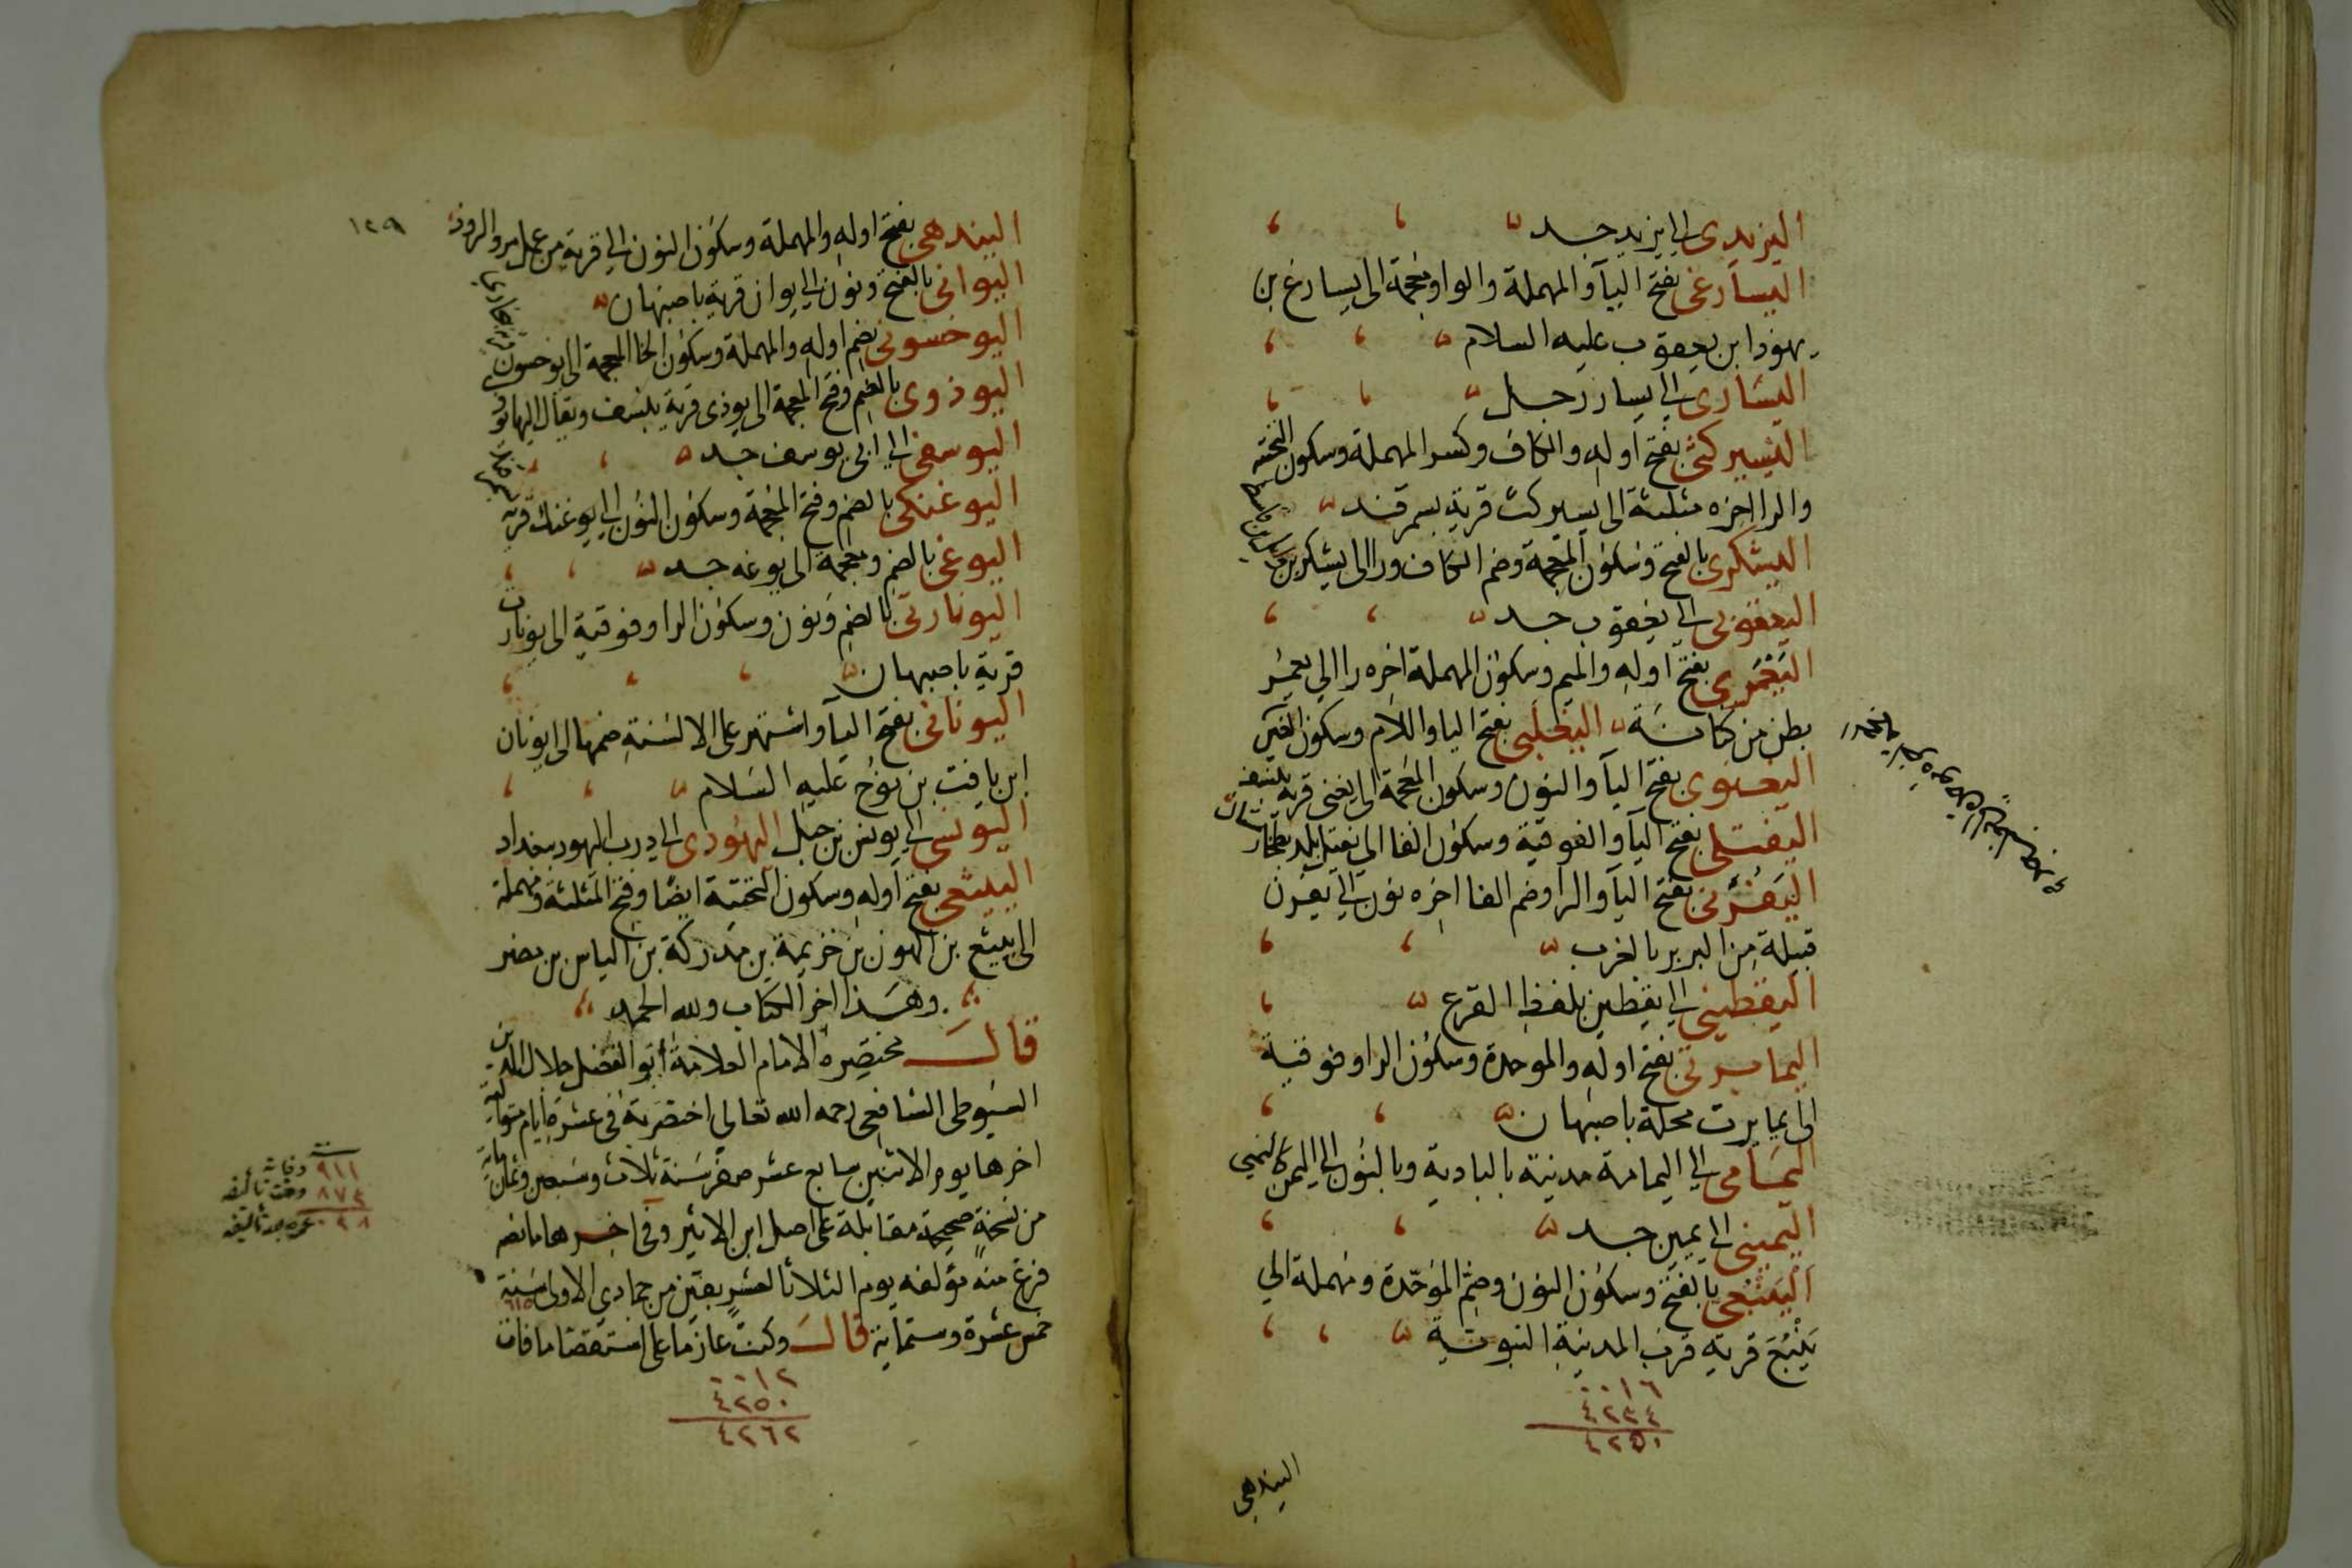 اليزيدى الى يزيد جد
اليسارغى بفتح اليآ والمهملة والواو معجمة الى يسارغ بن
يهودا بن يعقوب عليه السلام
اليسارى الى يسار رجل
اليسيركثى بفتح اوله والكاف وكسر المهملة وسكون التحتية
والرا اخره مثلثة الى يسيركث قرية بسمرقند
اليشكرى بالفتح وسكون المعجمة وضم الكاف ورا الى يشكر بن
اليعقوبى الى يعقوب جد
اليَعْمَرى بفتح اوله والميم وسكون المهملة اخره را الى يعمر
بطن من كنانة اليغلبى بفتح اليا واللام وسكون الغين
اليغنوى بفتح اليآ والنون وسكون المعجمة الى يغنى قرية بنسف
اليفتلى بفتح اليآ والفوقية وسكون الفا الى يفتل بلد بطخارستان
اليَفْرَنى بفتح اليآ والرا وضم الفا اخره نون الى يفرن
قبيلة من البربر بالغرب
اليقطينى الى يقطين بلفظ القرع
اليمابرتى بفتح اوله والموحدة وسكون الرا وفوقية
الى يمابرت محلة باصبهان
اليمَامى الى اليمامة مدينة بالبادية وبالنون الى اليمن كاليمنى
اليمينى الى يمين جد
اليَنْبُعى بالفتح وسكون النون وضم الموَحّدة ومهملة الى
يَنْبُعَ قرية قرب المدينة النبوية
٠٠١٦
٤٢٣٤
٤٢٥٠
اليندهى
١٢٩
اليندهى بفتح اوله والمهملة وسكون النون الى قرية من عمل مرو الروذ
اليوانى بالفتح ونون الى يوان قرية باصبهان
اليوخسونى بضم اوله والمهملة وسكون الخا المعجمة الى يوخسون
اليوذوى بالضم وفتح المعجمة الى يوذى قرية بنسف ويقال اليها
اليوسفى الى ابى يوسف جد
اليوغنكى بالضم وفتح المعجمة وسكون النون الى يوغنك قرية
اليوغى بالضم ومعجمة الى يوغه جد
اليونارتى بالضم ونون وسكون الرا وفوقية الى يونارت
قرية باصبهان
اليونانى بفتح اليآ واشتهر على الالسنة ضمها الى يونان
ابن يافث بن نوح عليه السلام
اليونسى الى يونس بن جبل اليهودى الى درب اليهود ببغداد
الييثعى بفتح اوله وسكون التحتية ايضًا وفتح المثلثة ومهملة
الى ييثع بن الهون بن خزيمة بن مدركة بن الياس بن مضر
وهذا اخر الكتاب ولله الحمد
قال مختصره الامام العلامة ابو الفضل جلال الدين
السيوطى الشافعى رحمه الله تعالى اختصرته فى عشرة ايام متوالية
اخرها يوم الاثنين سابع عشر صفر سنة ثلاث وسبعين وثمانماية
من نسخة صحيحة مقابلة على اصل ابن الاثير وفى اخرها ما نصه
فرغ منه مؤلفه يوم الثلاثا لعشر بقين من جمادى الاولى سنة
خمس عشرة وستماية ٦١٥ قال وكنت عازما على استقصا ما فات
سنة
٩١١ وفاته
٨٧٣ وقت تأليفه
٠٣٨ عمره بعد تأليفه
٠٠١٢
٤٢٥٠
٤٢٦٢